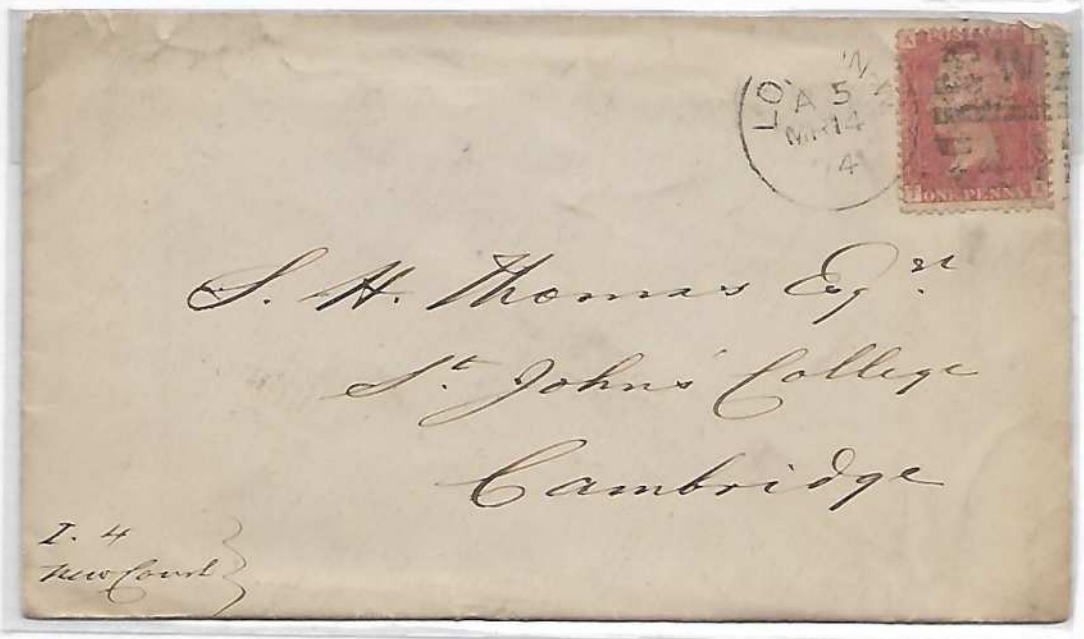 LO N.W
A 5
MR 14
4
ONE PENNY
S. H. Thomas Esqre
St. John's College
Cambridge
I. 4
New Court